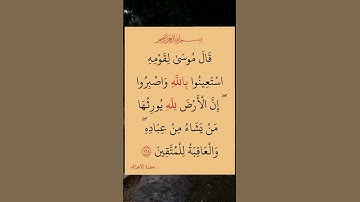 بسم الله الرحمن الرحيم
قَالَ مُوسَىٰ لِقَوْمِهِ
اسْتَعِينُوا بِاللَّهِ وَاصْبِرُوا
ۖ إِنَّ الْأَرْضَ لِلَّهِ يُورِثُهَا
مَنْ يَشَاءُ مِنْ عِبَادِهِ ۖ
وَالْعَاقِبَةُ لِلْمُتَّقِينَ ١٢٨
سورة الأعراف